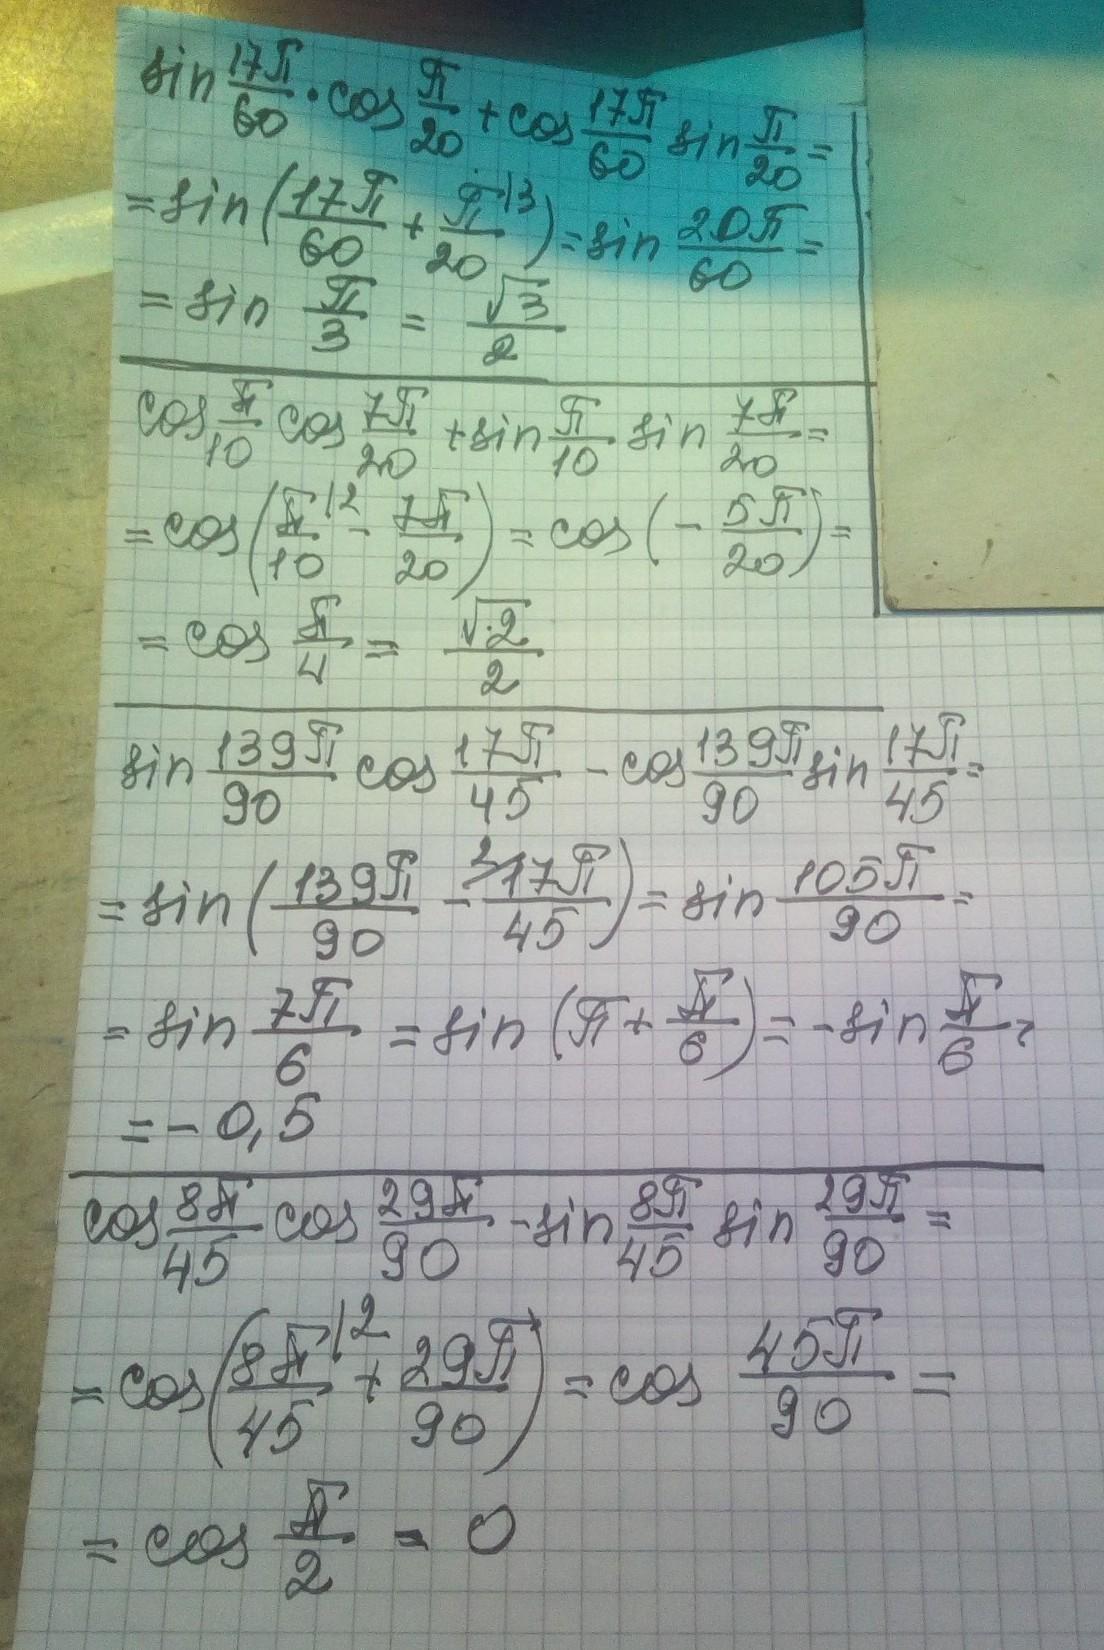 sin 17π/60 · cos π/20 + cos 17π/60 sin π/20 =
= sin(17π/60 + π/20 |3) = sin 20π/60 =
= sin π/3 = √3/2
cos π/10 cos 7π/20 + sin π/10 sin 7π/20 =
= cos(π/10 |2 - 7π/20) = cos(- 5π/20) =
= cos π/4 = √2/2
sin 139π/90 cos 17π/45 - cos 139π/90 sin 17π/45 =
= sin(139π/90 - 2\17π/45) = sin 105π/90 =
= sin 7π/6 = sin(π + π/6) = - sin π/6 =
= - 0,5
cos 8π/45 cos 29π/90 - sin 8π/45 sin 29π/90 =
= cos(8π/45 |2 + 29π/90) = cos 45π/90 =
= cos π/2 = 0